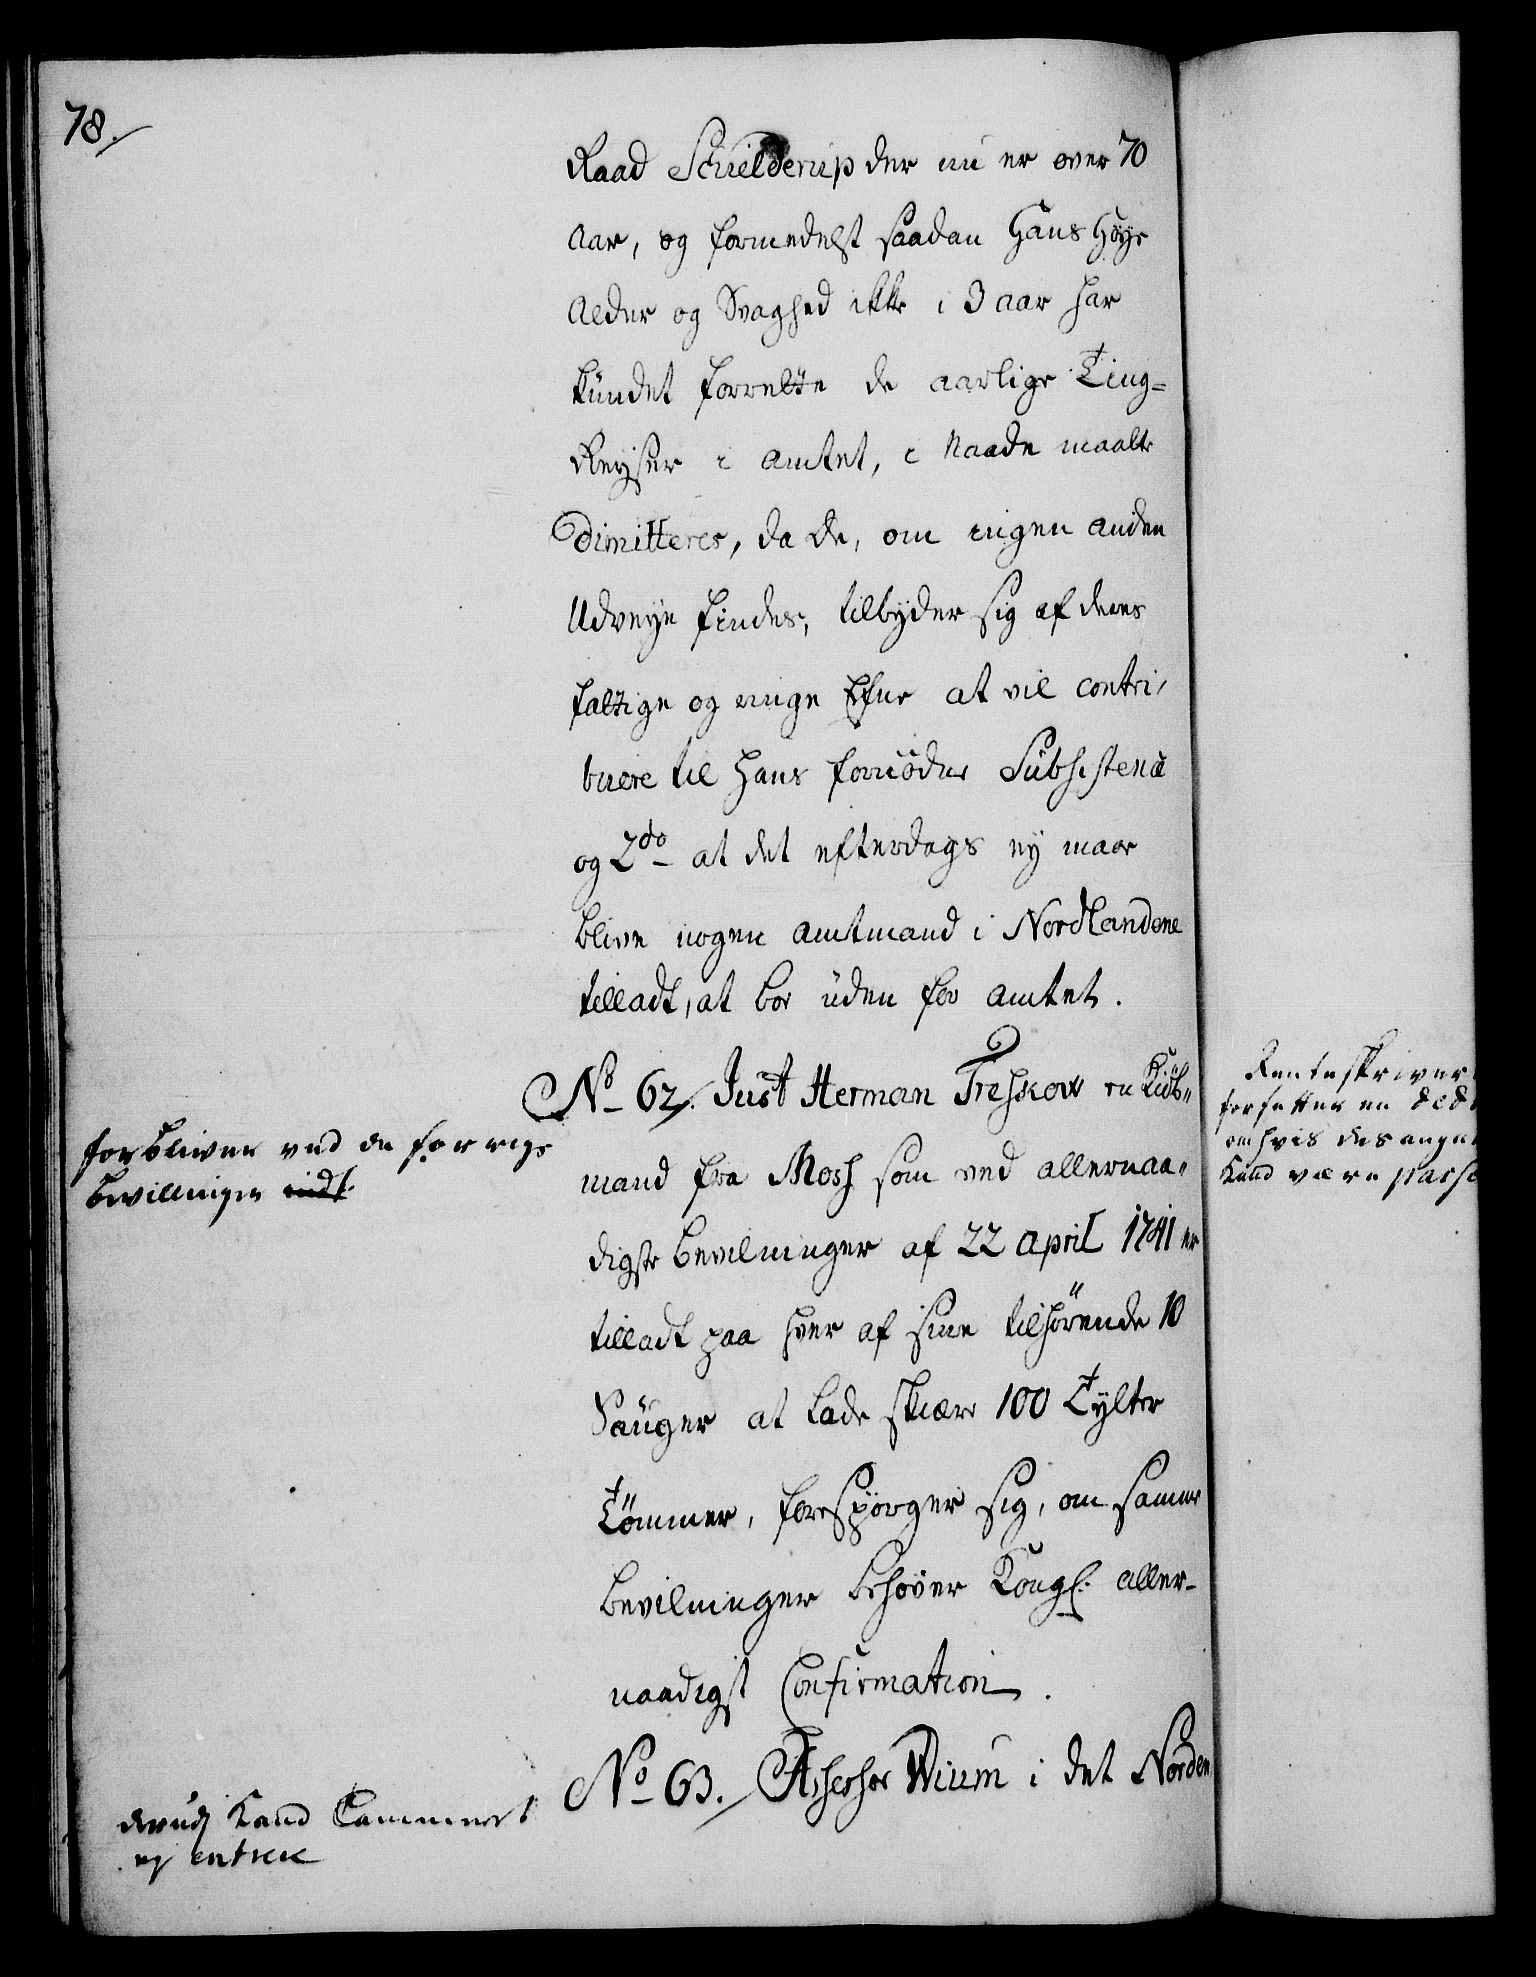 78.
Raad Schielderup der nu er over 70
Aar, og formedelst saadan Hans Høye
Alder og Svaghed ikke i 3 aar har
kundet forrette de aarlige Ting=
Reyser i Amtet, i Naade maatte
Dimitteres, da de, om ingen anden
Udveye findes, tilbyder sig af deres
fattige og ringe Efne at vil contri,
buere til Hans fornöden Subsistence
og 2do at det efterdags ey maae
blive nogen Amtmand i Nordlandene
tilladt, at boe uden for Amtet.
No 62. Just Herman Treskow en Kiöb=
mand fra Moss som ved allernaa=
digste Bevilninger af 22 April 1741 er
tilladt paa hver af sine tilhörende 10
Sauger at lade skiære 100 Tylter
Tömmer, forespörger sig, om samme
Bevilninger behöver Kongl: aller-
naadigst Confirmation.
No 63. Assessor Wium i det Norden
forbliver ved de forrige
bevillinger indt
derudj kand Cammeret
ej entrere
Renteskriver
forfatter en
om hvis des ange
kand være passe